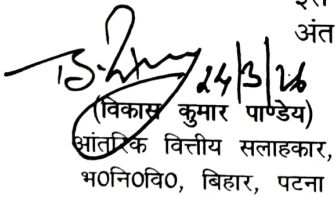 अंत
24/3/26
(विकास कुमार पाण्डेय)
आंतरिक वित्तीय सलाहकार,
भ०नि०वि०, बिहार, पटना